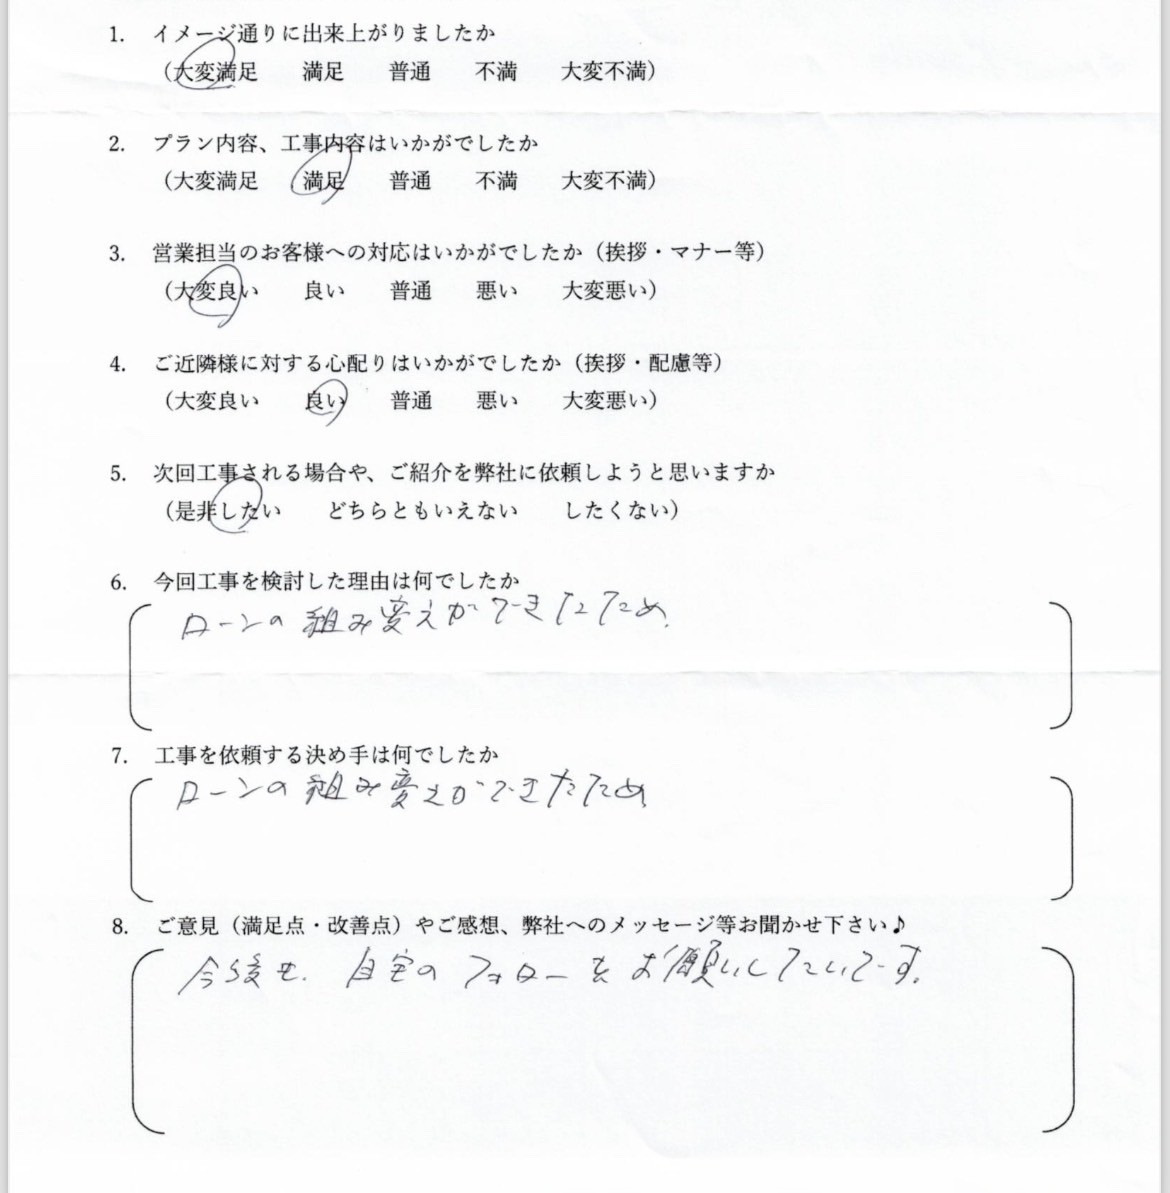 1. イメージ通りに出来上がりましたか
（大変満足 満足 普通 不満 大変不満）
2. プラン内容、工事内容はいかがでしたか
（大変満足 満足 普通 不満 大変不満）
3. 営業担当のお客様への対応はいかがでしたか（挨拶・マナー等）
（大変良い 良い 普通 悪い 大変悪い）
4. ご近隣様に対する心配りはいかがでしたか（挨拶・配慮等）
（大変良い 良い 普通 悪い 大変悪い）
5. 次回工事される場合や、ご紹介を弊社に依頼しようと思いますか
（是非したい どちらともいえない したくない）
6. 今回工事を検討した理由は何でしたか
ローンの組み変えができたため.
7. 工事を依頼する決め手は何でしたか
ローンの組み変えができたため
8. ご意見（満足点・改善点）やご感想、弊社へのメッセージ等お聞かせ下さい♪
今後も. 自宅のフォローをお願いしたいです.